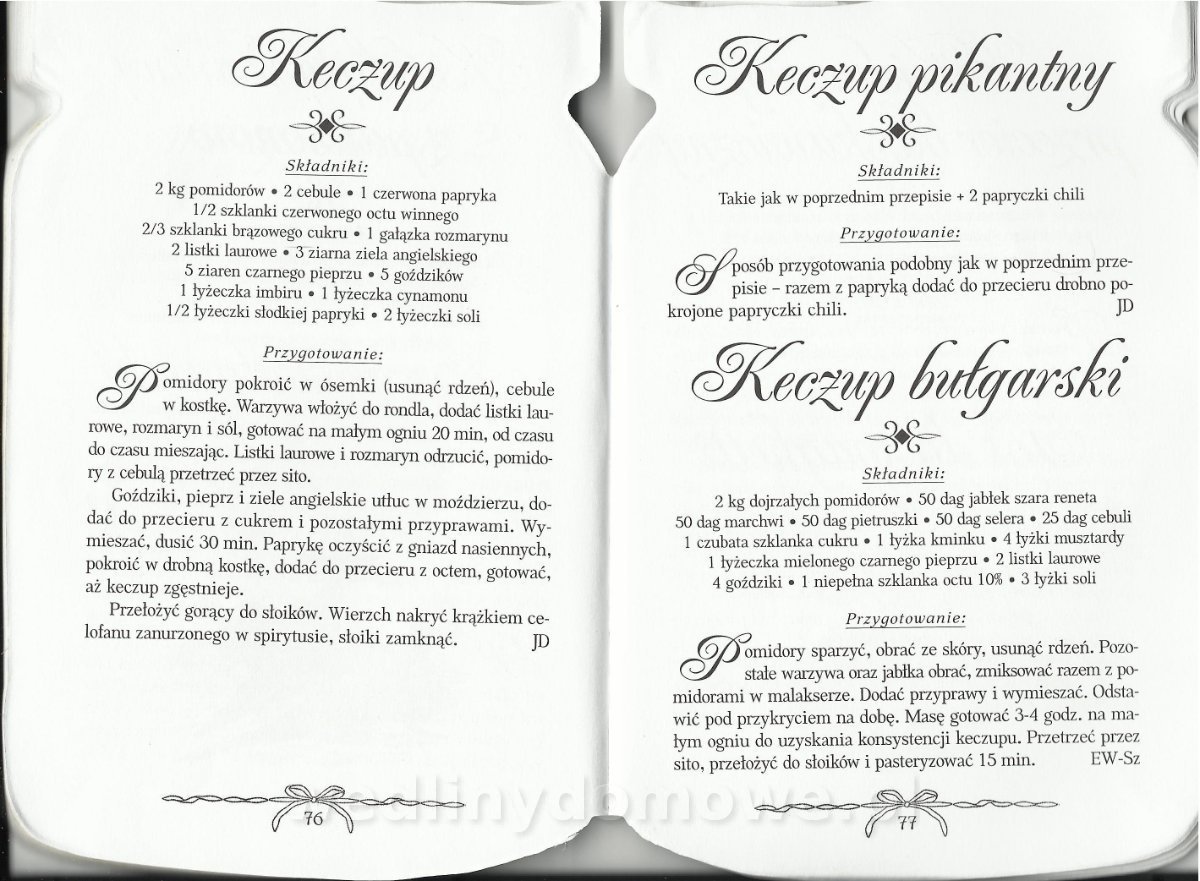 Keczup
Składniki:
2 kg pomidorów • 2 cebule • 1 czerwona papryka
1/2 szklanki czerwonego octu winnego
2/3 szklanki brązowego cukru • 1 gałązka rozmarynu
2 listki laurowe • 3 ziarna ziela angielskiego
5 ziaren czarnego pieprzu • 5 goździków
1 łyżeczka imbiru • 1 łyżeczka cynamonu
1/2 łyżeczki słodkiej papryki • 2 łyżeczki soli
Przygotowanie:
Pomidory pokroić w ósemki (usunąć rdzeń), cebule
w kostkę. Warzywa włożyć do rondla, dodać listki lau-
rowe, rozmaryn i sól, gotować na małym ogniu 20 min, od czasu
do czasu mieszając. Listki laurowe i rozmaryn odrzucić, pomido-
ry z cebulą przetrzeć przez sito.
Goździki, pieprz i ziele angielskie utłuc w moździerzu, do-
dać do przecieru z cukrem i pozostałymi przyprawami. Wy-
mieszać, dusić 30 min. Paprykę oczyścić z gniazd nasiennych,
pokroić w drobną kostkę, dodać do przecieru z octem, gotować,
aż keczup zgęstnieje.
Przełożyć gorący do słoików. Wierzch nakryć krążkiem ce-
lofanu zanurzonego w spirytusie, słoiki zamknąć. JD
76
Keczup pikantny
Składniki:
Takie jak w poprzednim przepisie + 2 papryczki chili
Przygotowanie:
Sposób przygotowania podobny jak w poprzednim prze-
pisie – razem z papryką dodać do przecieru drobno po-
krojone papryczki chili. JD
Keczup bułgarski
Składniki:
2 kg dojrzałych pomidorów • 50 dag jabłek szara reneta
50 dag marchwi • 50 dag pietruszki • 50 dag selera • 25 dag cebuli
1 czubata szklanka cukru • 1 łyżka kminku • 4 łyżki musztardy
1 łyżeczka mielonego czarnego pieprzu • 2 listki laurowe
4 goździki • 1 niepełna szklanka octu 10% • 3 łyżki soli
Przygotowanie:
Pomidory sparzyć, obrać ze skóry, usunąć rdzeń. Pozo-
stałe warzywa oraz jabłka obrać, zmiksować razem z po-
midorami w malakserze. Dodać przyprawy i wymieszać. Odsta-
wić pod przykryciem na dobę. Masę gotować 3-4 godz. na ma-
łym ogniu do uzyskania konsystencji keczupu. Przetrzeć przez
sito, przełożyć do słoików i pasteryzować 15 min. EW-Sz
77